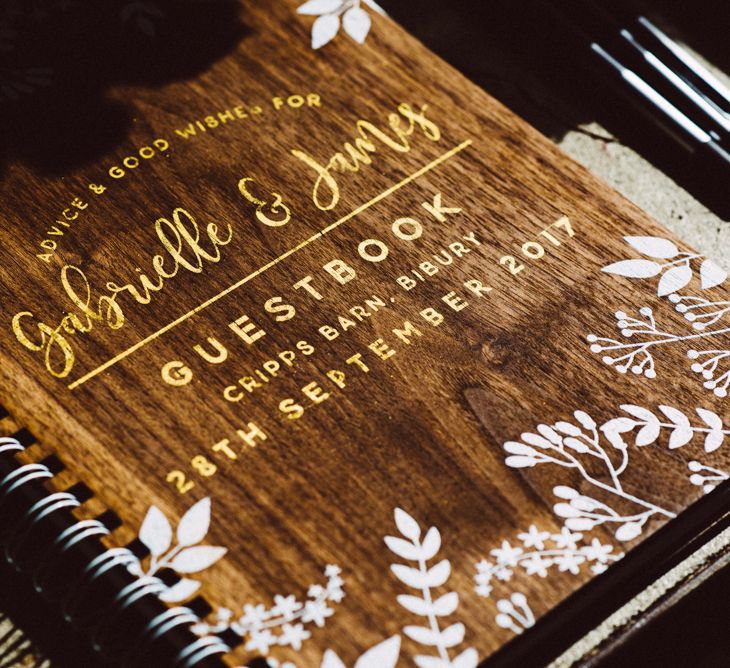 ADVICE & GOOD WISHES FOR
Gabrielle & James
GUESTBOOK
CRIPPS BARN, BIBURY
28TH SEPTEMBER 2017